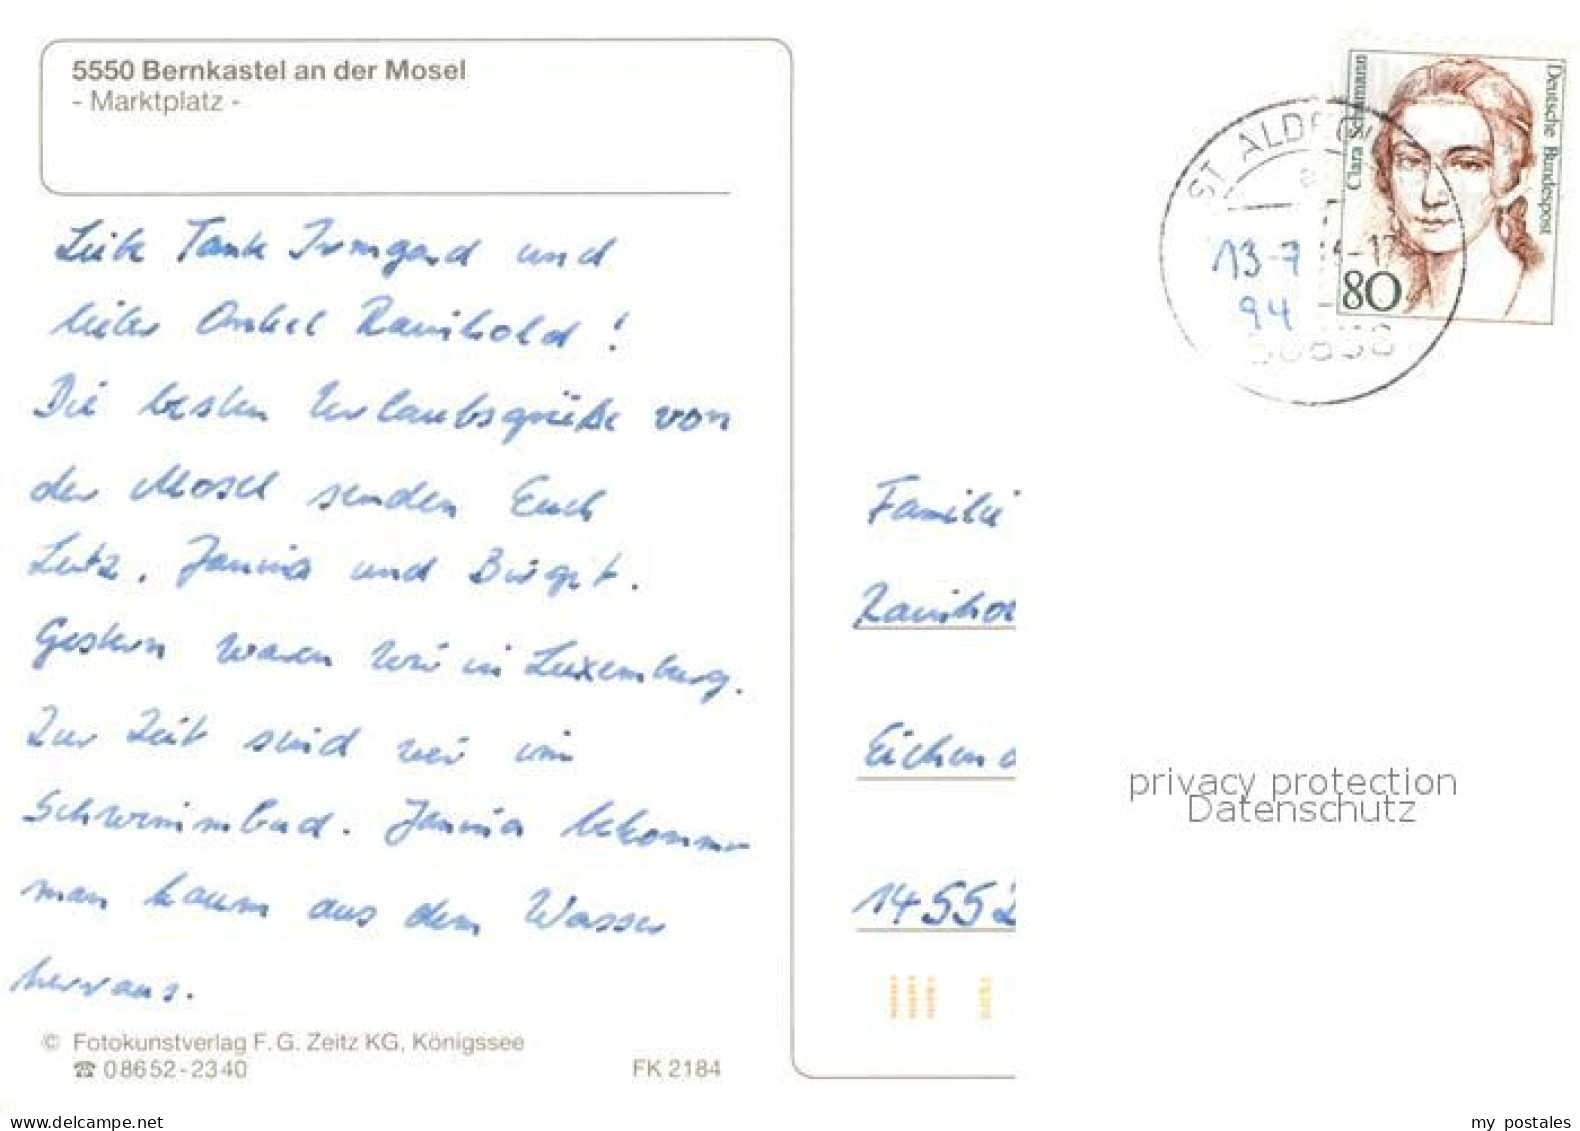 5550 Bernkastel an der Mosel
- Marktplatz -
Liebe Tante Irmgard und
lieber Onkel Rainhold!
Die besten Urlaubsgrüße von
der Mosel senden Euch
Lutz, Jannis und Birgit.
Gestern waren wir in Luxemburg.
Zur Zeit sind wir im
Schwimmbad. Jannis bekommt
man kaum aus dem Wasser
herraus.
© Fotokunstverlag F. G. Zeitz KG, Königssee
☎ 08652-2340
FK 2184
Clara Schumann
Deutsche Bundespost
80
ST ALDEGUND
13-7
94
Familie
Eichend
14552
privacy protection
Datenschutz
www.delcampe.net
my_postales